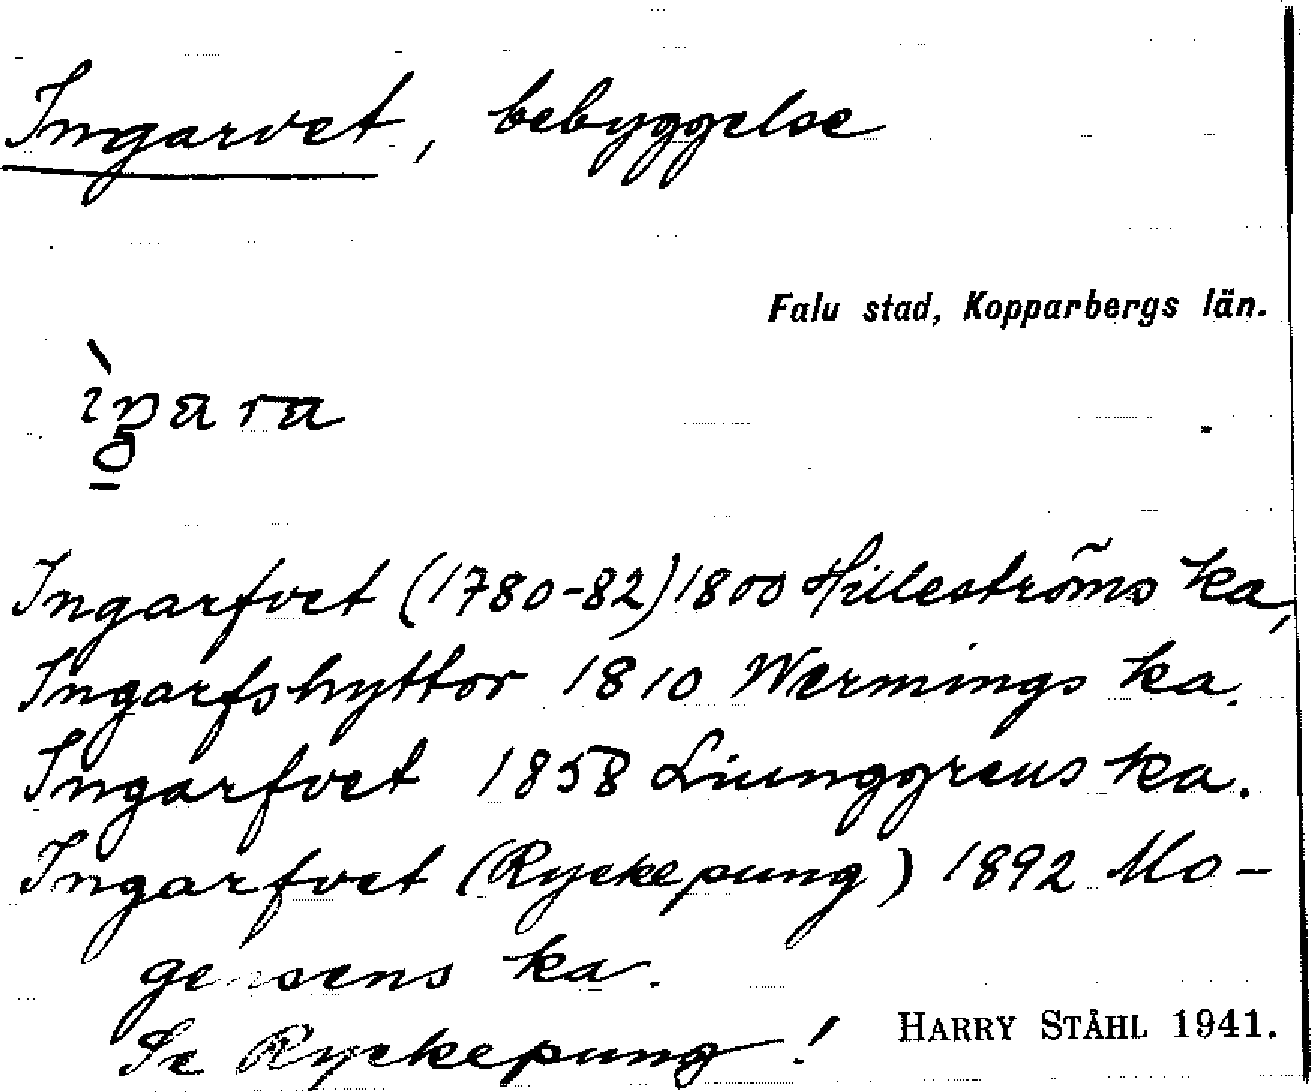 Ingarvet, bebyggelse
Falu stad, Kopparbergs län.
Ingarfvet (1780-82) 1800 Hilleströms ka,
Ingarfshyttor 1810 Wermings ka.
Ingarfvet 1858 Liunggrens ka.
Ingarfvet (Ryckepung) 1892 Mo-
gensens ka.
Se Ryckepung!
HARRY STÅHL 1941.